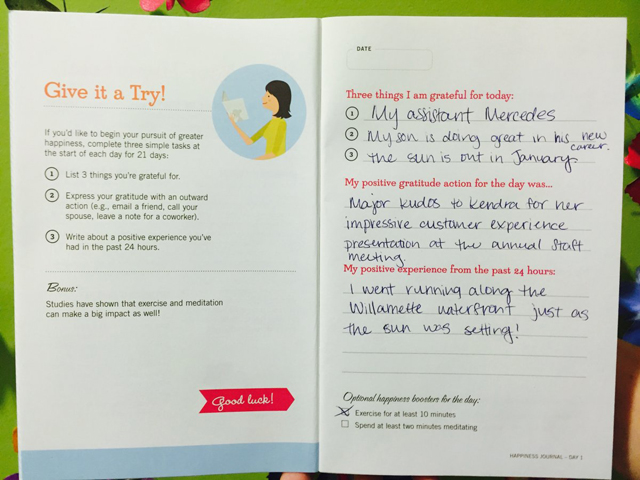 Give it a Try!
If you'd like to begin your pursuit of greater
happiness, complete three simple tasks at
the start of each day for 21 days:
1 List 3 things you're grateful for.
2 Express your gratitude with an outward
action (e.g., email a friend, call your
spouse, leave a note for a coworker).
3 Write about a positive experience you've
had in the past 24 hours.
Bonus:
Studies have shown that exercise and meditation
can make a big impact as well!
Good luck!
DATE
Three things I am grateful for today:
1 My assistant Mercedes
2 My son is doing great in his new
career.
3 the sun is out in January
My positive gratitude action for the day was...
Major kudos to Kendra for her
impressive customer experience
presentation at the annual staff
meeting.
My positive experience from the past 24 hours:
I went running along the
Willamette waterfront just as
the sun was setting!
Optional happiness boosters for the day:
Exercise for at least 10 minutes
Spend at least two minutes meditating
HAPPINESS JOURNAL - DAY 1